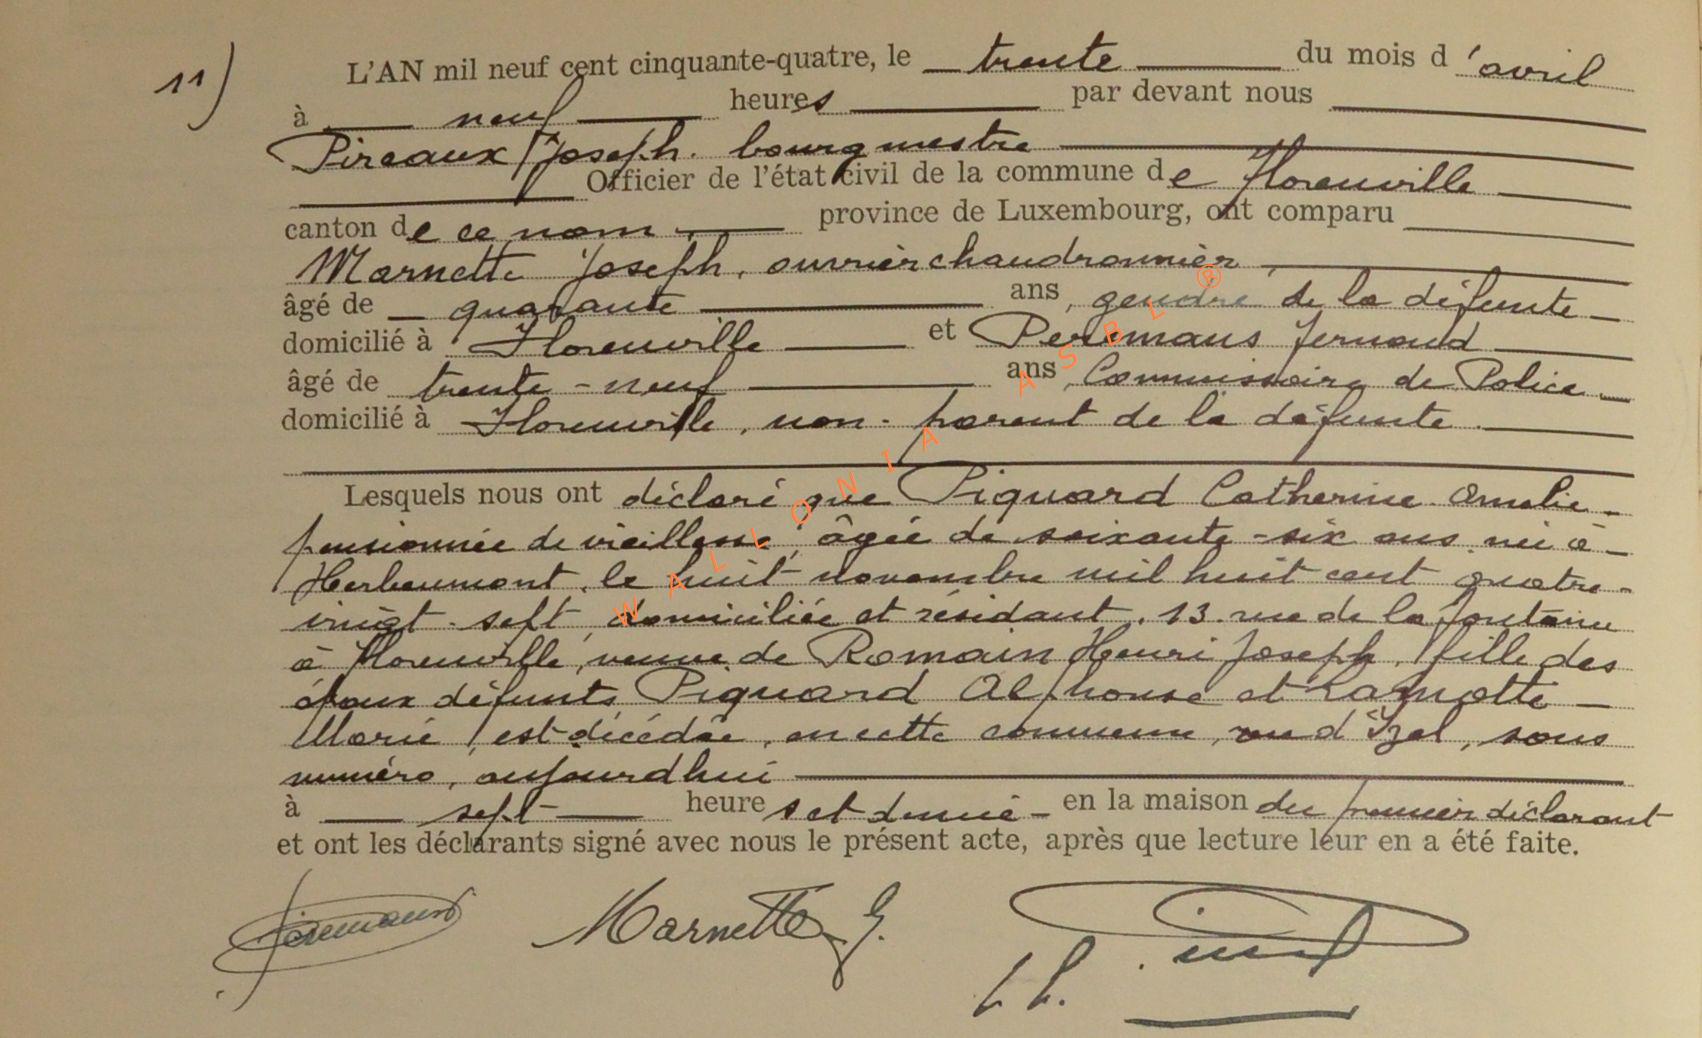 11) L'AN mil neuf cent cinquante-quatre, le trente du mois d'avril
à neuf heures par devant nous
Pireaux Joseph. bourgmestre
Officier de l'état civil de la commune de Florenville
canton de ce nom province de Luxembourg, ont comparu
Marnette Joseph, ouvrier chaudronnier
âgé de quarante ans, gendre de la défunte
domicilié à Florenville et Peremans Fernand
âgé de trente-neuf ans, Commissaire de Police
domicilié à Florenville, non-parent de la défunte.
Lesquels nous ont déclaré que Piquard Catherine Amelie
pensionnée de vieillesse, âgée de soixante-six ans, née à
Herbeumont, le huit novembre mil huit cent quatre-
vingt-sept, domiciliée et résidant, 13, rue de la fontaine
à Florenville, veuve de Romain Henri Joseph, fille des
époux défunts Piquard Alphonse et Lamotte
Marie, est décédée, en cette commune, rue d'Izel, sans
numéro, aujourdhui
à sept heures et demie en la maison du premier déclarant
et ont les déclarants signé avec nous le présent acte, après que lecture leur en a été faite.
Peremans Marnette J.
WALLONIA ASBL ®